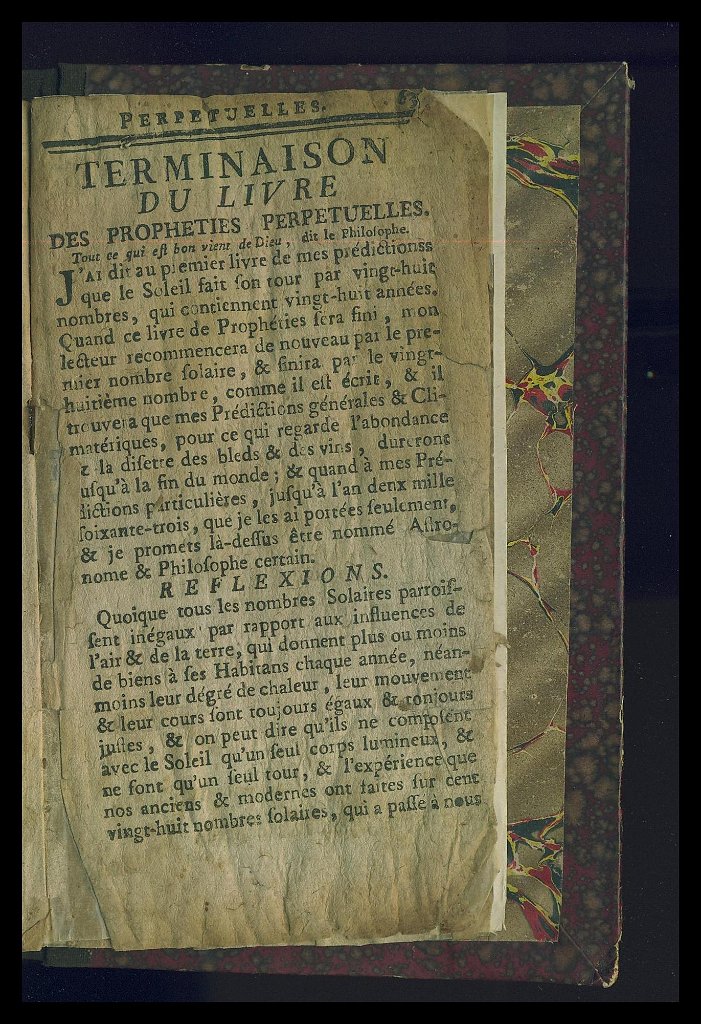 PERPETUELLES. 63
TERMINAISON
DU LIVRE
DES PROPHETIES PERPETUELLES.
Tout ce qui eſt bon vient de Dieu, dit le Philoſophe.
J'AI dit au premier livre de mes prédictionss
que le Soleil fait ſon tour par vingt-huit
nombres, qui contiennent vingt-huit années.
Quand ce livre de Prophéties ſera fini, mon
lecteur recommencera de nouveau par le pre-
mier nombre ſolaire, & finira par le vingt-
huitième nombre, comme il eſt écrit, & il
trouvera que mes Prédictions générales & Cli-
matériques, pour ce qui regarde l'abondance
& la diſette des bleds & des vins, dureront
uſqu'à la fin du monde; & quand à mes Pré-
dictions particulières, juſqu'à l'an denx mille
ſoixante-trois, que je les ai portées ſeulement,
& je promets là-deſſus être nommé Aſtro-
nome & Philoſophe certain.
REFLEXIONS.
Quoique tous les nombres Solaires parroiſ-
ſent inégaux par rapport aux influences de
l'air & de la terre, qui donnent plus ou moins
de biens à ſes Habitans chaque année, néan-
moins leur dégré de chaleur, leur mouvement
& leur cours ſont toujours égaux & tonjours
juſtes, & on peut dire qu'ils ne compoſent
avec le Soleil qu'un ſeul corps lumineux, &
ne font qu'un ſeul tour, & l'expérience que
nos anciens & modernes ont faites ſur cent
vingt-huit nombres ſolaires, qui a paſſe à nous